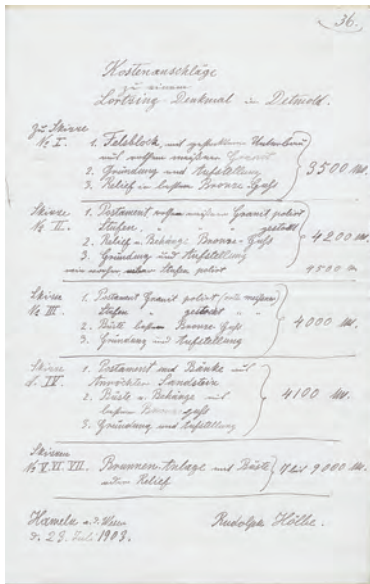 36.
Kostenanschläge
zu einem
Lortzing-Denkmal in Detmold.
Zu Skizze
№ I. 1. Felsblock, mit gestocktem Unterbau
aus rothem Granit
2. Gründung und Aufstellung
3. Relief in Bronze-Guß
3500 M.
Skizze
№ II. 1. Postament Granit polirt
Stufen " " gestockt
2. Relief u. Behänge Bronze-Guß
3. Gründung und Aufstellung
4200 M.
Stufen polirt 4500 M.
Skizze
№ III. 1. Postament Granit polirt
Stufen " gestockt " "
2. Büste Bronze Guß
3. Gründung und Aufstellung
4000 M.
Skizze
№ IV. 1. Postament und Bänke aus
Anröchter Sandstein
2. Büste u. Behänge aus
Bronzeguß
3. Gründung und Aufstellung
4100 M.
Skizzen
№ V. VI. VII. Brunnen-Anlage mit Büste
oder Relief
9000 M.
Hameln a. d. Weser
d. 23. Juli 1903.
Rudolph Hölbe.